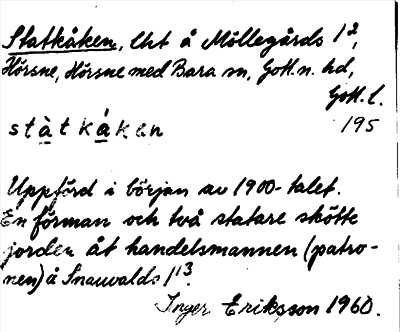 Statkåken, Cht å Möllegårds 1²,
Hörsne, Hörsne med Bara sn, Gotl. n. hd,
Gotl. l.
stàtkákan 195
Uppförd i början av 1900-talet.
En förman och två statare skötte
jorden åt handelsmannen (patro-
nen) å Snauvalds 1¹³.
Inger Eriksson 1960.